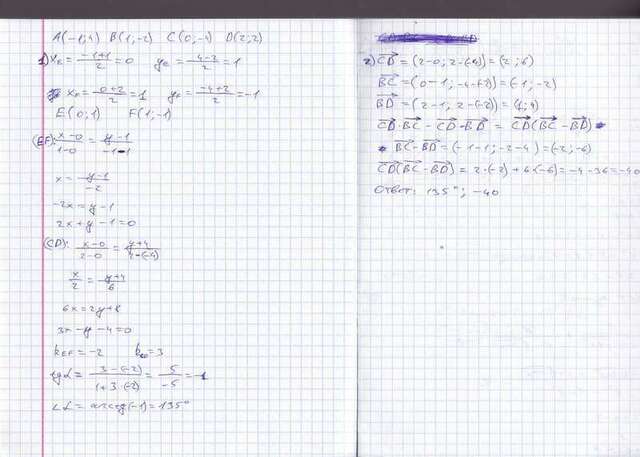 A(-1;4) B(1;-2) C(0;-4) D(2;2)
1) x_E = (-1+1)/2 = 0 y_E = (4-2)/2 = 1
x_F = (0+2)/2 = 1 y_F = (-4+2)/2 = -1
E(0;1) F(1;-1)
(EF): (x-0)/(1-0) = (y-1)/(-1-1)
x = (y-1)/(-2)
-2x = y-1
2x+y-1=0
(CD): (x-0)/(2-0) = (y+4)/(2-(-4))
x/2 = (y+4)/6
6x = 2y+8
3x-y-4=0
k_EF = -2 k_CD = 3
tgα = (3-(-2))/(1+3·(-2)) = 5/(-5) = -1
∠α = arctg(-1) = 135°
2) CD = (2-0; 2-(-4)) = (2; 6)
BC = (0-1; -4+2) = (-1; -2)
BD = (2-1; 2-(-2)) = (1; 4)
CD·BC - CD·BD = CD(BC - BD)
BC - BD = (-1-1; -2-4) = (-2; -6)
CD(BC - BD) = 2·(-2) + 6·(-6) = -4-36 = -40
Ответ: 135°; -40